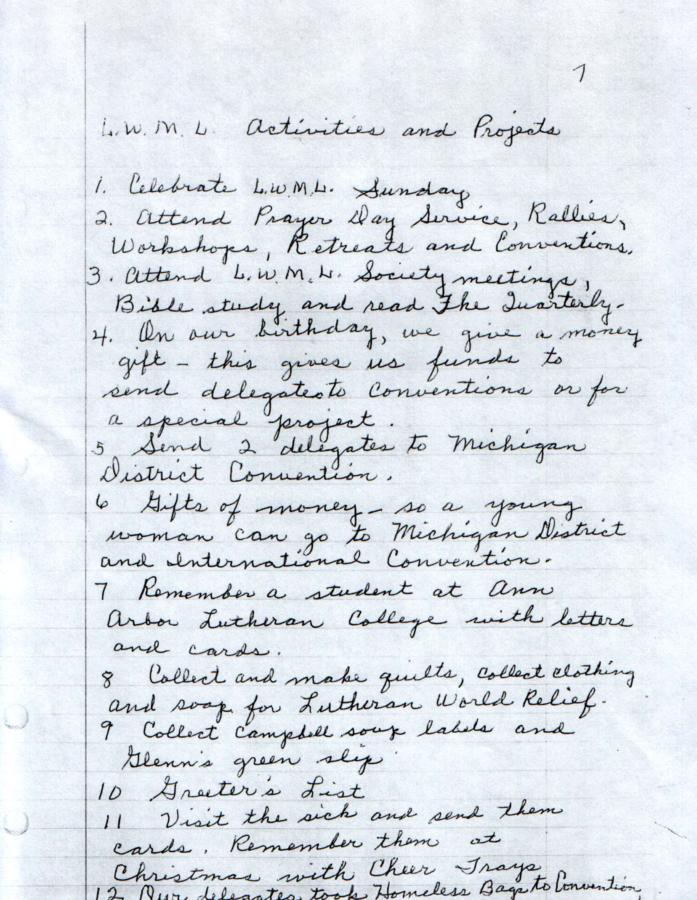 7
L.W.M.L. Activities and Projects
1. Celebrate L.W.M.L. Sunday
2. Attend Prayer Day Service, Rallies,
Workshops, Retreats and Conventions.
3. Attend L.W.M.L. Society meetings,
Bible study and read The Quarterly.
4. On our birthday, we give a money
gift - this gives us funds to
send delegates to conventions or for
a special project.
5 Send 2 delegates to Michigan
District Convention.
6 Gifts of money - so a young
woman can go to Michigan District
and International Convention.
7 Remember a student at Ann
Arbor Lutheran College with letters
and cards.
8 Collect and make quilts, collect clothing
and soap for Lutheran World Relief.
9 Collect Campbell soup labels and
Glenn's green slip
10 Greeter's List
11 Visit the sick and send them
cards. Remember them at
Christmas with Cheer Trays
12 Our delegates took Homeless Bags to Convention,